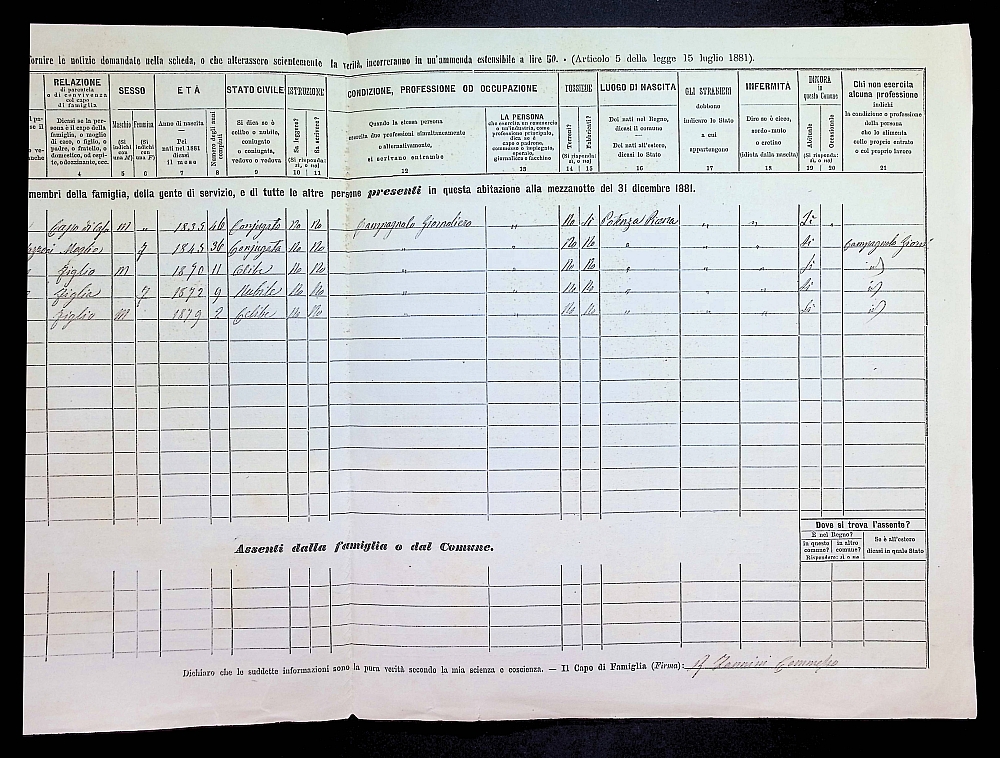 fornire le notizie domandate nella scheda, o che alterassero scientemente la verità, incorreranno in un'ammenda estensibile a lire 50. - (Articolo 5 della legge 15 luglio 1881).
RELAZIONE di parentela o di convivenza col capo di famiglia
SESSO
ETÀ
STATO CIVILE
ISTRUZIONE
CONDIZIONE, PROFESSIONE OD OCCUPAZIONE
POSSIEDE
LUOGO DI NASCITA
GLI STRANIERI dobbono indicare lo Stato a cui appartengono
INFERMITÀ
DIMORA in questo Comune
Chi non esercita alcuna professione indichi la condizione o professione della persona che lo alimenta collo proprio entrate o col proprio lavoro
Dicasi se la persona è il capo della famiglia, o moglie di esso, o figlio, o padre, o fratello, o domestico, od ospite, o dozzinante, ecc.
Maschio (Si indichi con una M)
Femmina (Si indichi con una F)
Anno di nascita
Dei nati nel 1881 dicasi il mese
Numero degli anni compiuti
Si dica se è celibe o nubile, coniugato o coniugata, vedovo o vedova
Sa leggere?
Sa scrivere?
(Si risponda: sì, o no)
Quando la stessa persona esercita due professioni simultaneamente o alternativamente, si scrivano entrambe
LA PERSONA che esercita un commercio o un'industria, come professione principale, dica se è capo o padrone, commesso o impiegato, operaio, giornaliero o facchino
Terreni?
Fabbricati?
(Si risponda: sì, o no)
Dei nati nel Regno, dicasi il comune
Dei nati all'estero, dicasi lo Stato
Dire se è cieco, sordo-muto o cretino (idiota dalla nascita)
Abituale
Occasionale
(Si risponda: sì, o no)
4 5 6 7 8 9 10 11 12 13 14 15 16 17 18 19 20 21
membri della famiglia, della gente di servizio, e di tutte le altre persone presenti in questa abitazione alla mezzanotte del 31 dicembre 1881.
Capo di M „ 1835 46 Conjugato No No Campagnolo Giornaliero „ No Si Potenza Picena „ „ Si „
Moglie F 1845 36 Conjugata No No „ „ No No „ „ „ Si Campagnolo
Figlio M 1870 11 Celibe No No „ „ No No „ „ „ Si id
Figlia F 1872 9 Nubile No No „ „ No No „ „ „ Si id
Figlio M 1879 2 Celibe No No „ „ No No „ „ „ Si id
Assenti dalla famiglia o dal Comune.
Dove si trova l'assente?
È nel Regno?
in questo comune?
in altro comune?
Rispondere: sì o no
Se è all'estero dicasi in quale Stato
Dichiaro che le suddette informazioni sono la pura verità secondo la mia scienza e coscienza. — Il Capo di Famiglia (Firma):